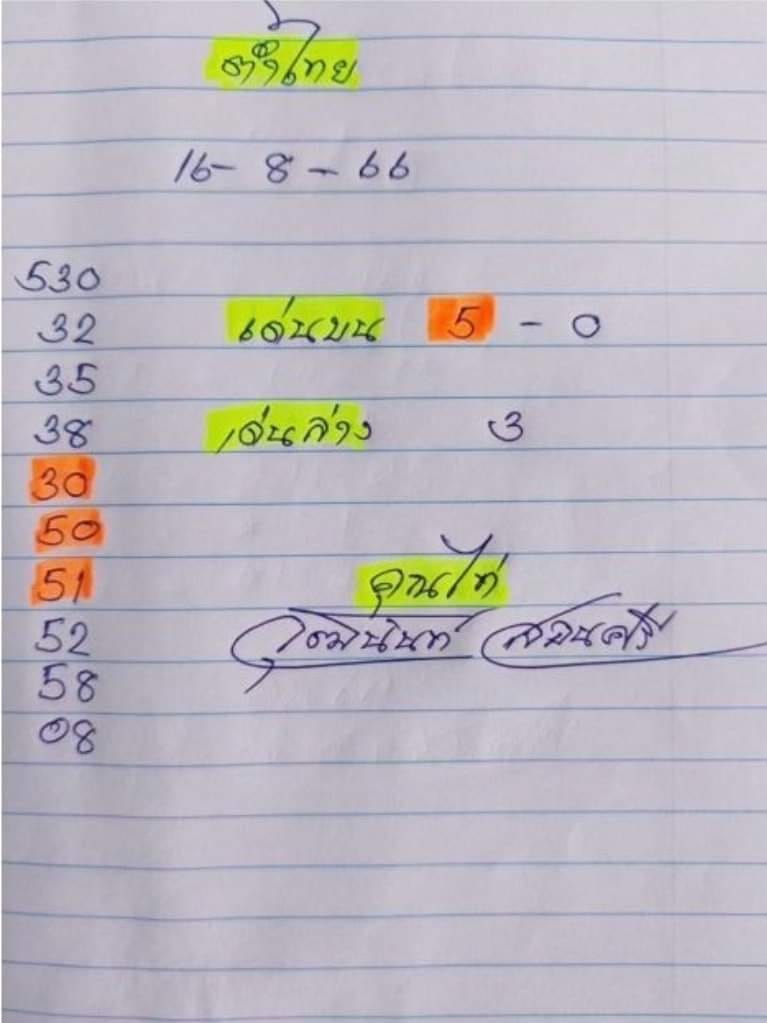 ตำไทย
16 - 8 - 66
530
32 เด่นบน 5 - 0
35
38 เด่นล่าง 3
30
50
51 คุณไก่
52
58
08